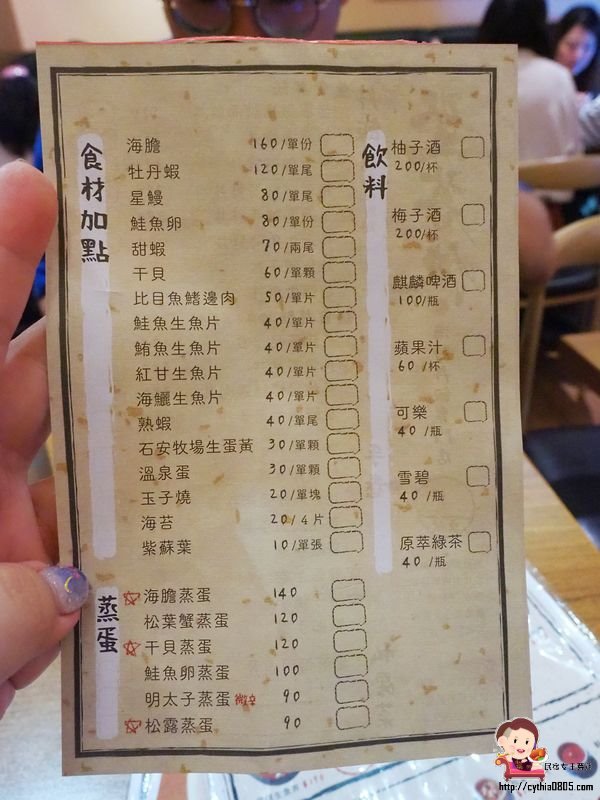 食材加點
海膽 160/單份
牡丹蝦 120/單尾
星鰻 80/單尾
鮭魚卵 80/單份
甜蝦 70/兩尾
干貝 60/單顆
比目魚鰭邊肉 50/單片
鮭魚生魚片 40/單片
鮪魚生魚片 40/單片
紅甘生魚片 40/單片
海鱺生魚片 40/單片
熟蝦 40/單尾
石安牧場生蛋黃 30/單顆
溫泉蛋 30/單顆
玉子燒 20/單塊
海苔 20/4片
紫蘇葉 10/單張
蒸蛋
海膽蒸蛋 140
松葉蟹蒸蛋 120
干貝蒸蛋 120
鮭魚卵蒸蛋 100
明太子蒸蛋 微辛 90
松露蒸蛋 90
飲料
柚子酒
200/杯
梅子酒
200/杯
麒麟啤酒
100/瓶
蘋果汁
60/杯
可樂
40/瓶
雪碧
40/瓶
原萃綠茶
40/瓶
http://cythia0805.com